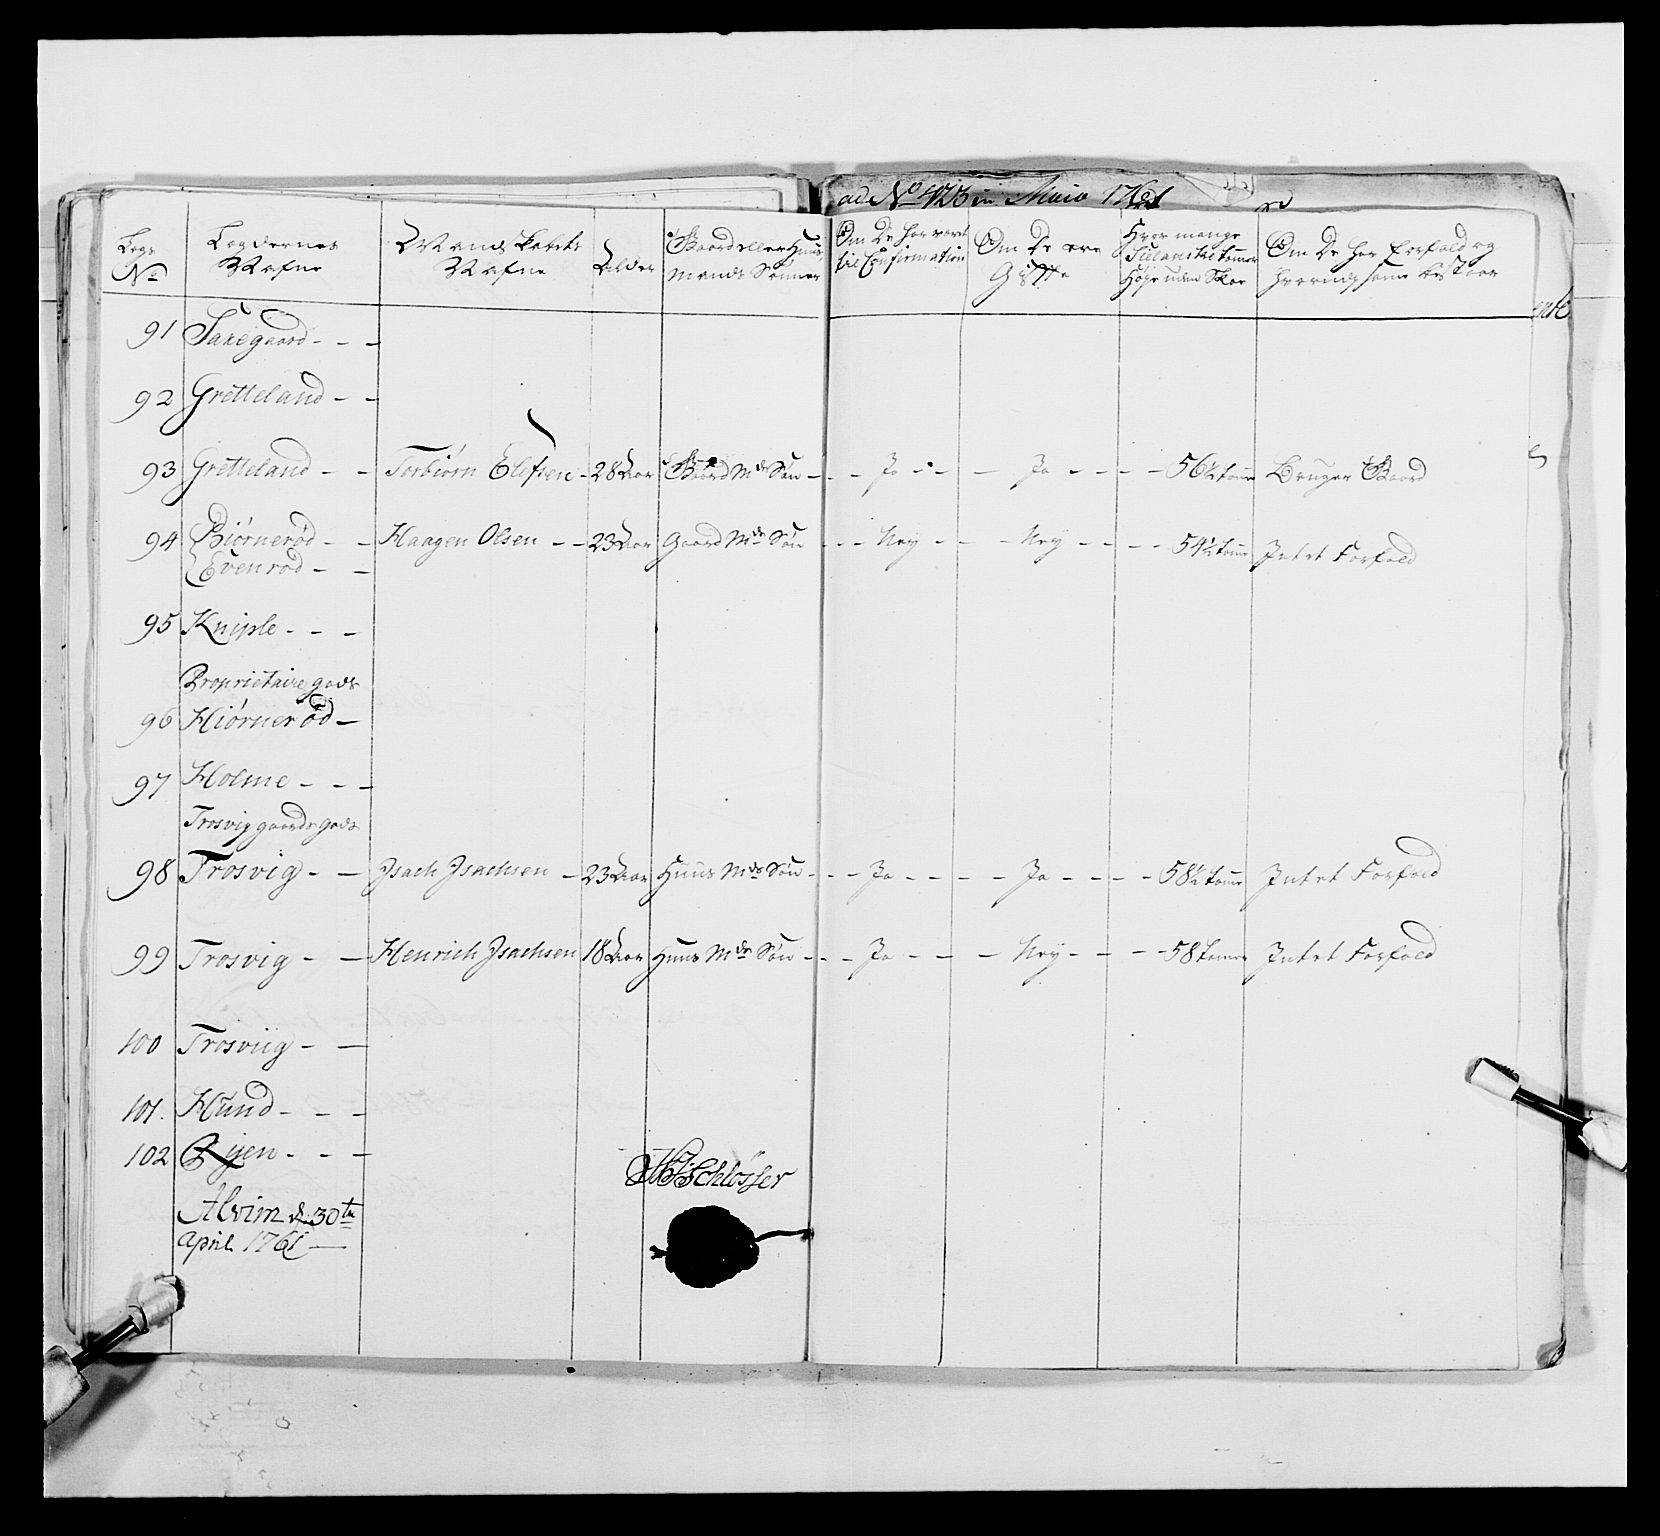 ad No 423 in Maio 1761
Legs No
Legdernes Nafne
Mandskabets Nafne
Alder
Gaard eller Huus Mands Sønner
Om De har veret til Confirmation
Om De ere Giffte
Hvor mange Siellandske tommer Høye uden Skoe
Om De har Forfald og hvorudj samme bestaar
91 Taxegaard - - -
92 Gretteland - -
93 Gretteland - - Torbiørn Elefsen - 28 Aar Gaard Mds Søn - - - Ja - - - Ja - - - - 56½ tomr Bruger Gaard
94 Biørnerød - - Haagen Olsen - - 23 Aar Gaard Mds Søn - - - Ney - - - Ney - - - - 54½ tomr Intet Forfald
Evenrød - -
95 Kniple - - -
Proprietaire gods
96 Hiørnerød -
97 Holme - - -
Trosvig gaards gods
98 Trosvig - - Isach Isachsen - 23 Aar Huus Mds Søn - - - Ja - - - - - Ja - - - - - 58½ tomr Intet Forfald
99 Trosvig - - Henrich Isachsen 18 Aar Huus Mds Søn - - - Ja - - - - Ney - - - - 58 tomer Intet Forfald
100 Trosviig - -
101. Hund - - -
102 Ryen - - -
Schlösser
Alvim d. 30te
April 1761